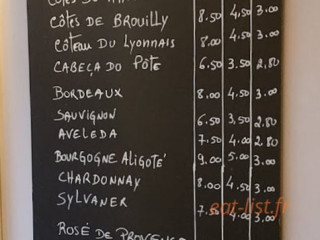 CÔTES DE BROUILLY 8.50 4.50 3.00
CÔTEAU DU LYONNAIS 8.00 4.50 3.00
CABEÇA DO PÔTE 6.50 3.50 2.80
BORDEAUX 8.00 4.50 3.00
SAUVIGNON 6.50 3.50 2.80
AVELEDA 7.50 4.00 2.80
BOURGOGNE ALIGOTÉ 9.00 5.00 3.00
CHARDONNAY 8.00 4.50 3.00
SYLVANER 7.50 4.00 3.00
ROSÉ DE PROVENCE
eat-list.fr